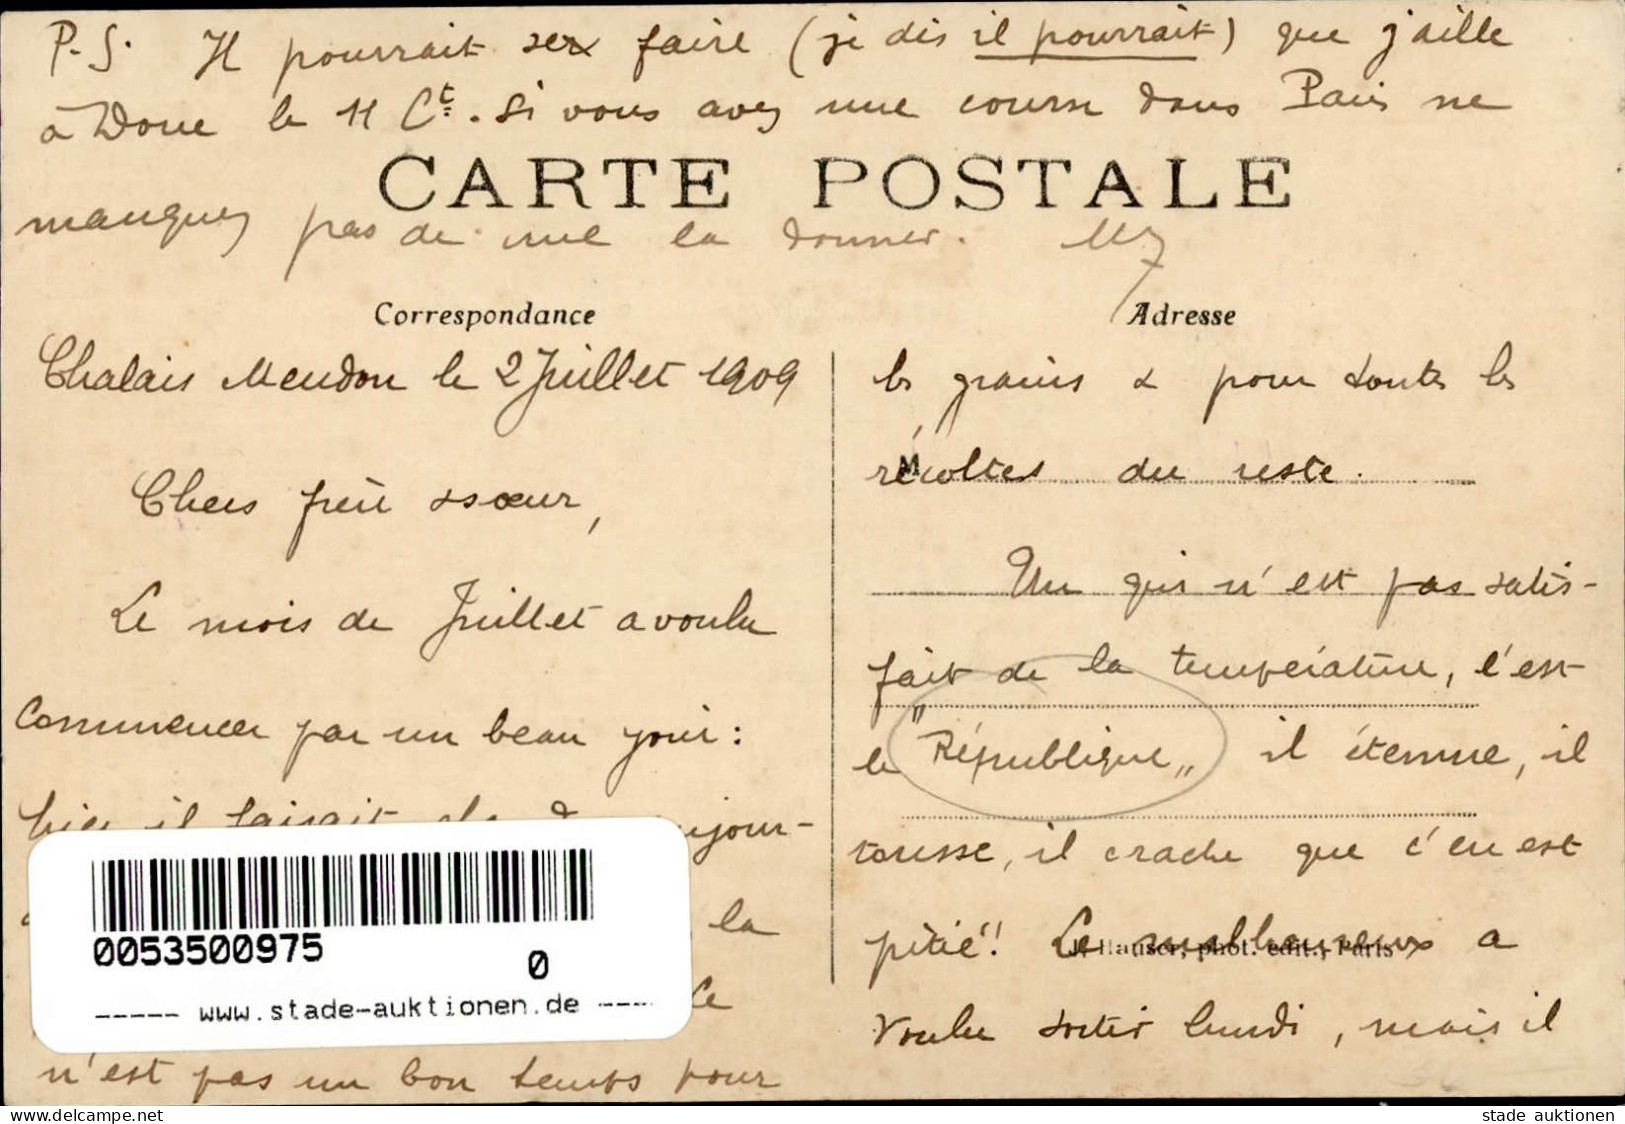 P.S. Il pourrait se faire (je dis il pourrait) que j'aille
à Doue le 11 Ct. Si vous avez une course dans Paris ne
CARTE POSTALE
manquez pas de me la donner.
Correspondance
Chalais Meudon le 2 Juillet 1909
Chers frère & sœur,
Le mois de Juillet a voulu
commencer par un beau jour:
hier il faisait
la
n'est pas un bon temps pour
0053500975
0
----- www.stade-auktionen.de ----
Adresse
les grains & pour toutes les
récoltes du reste.
Un qui n'est pas satis-
fait de la température, c'est
le "République" il éternue, il
tousse, il crache que c'en est
pitié!! Le malheureux a
J. Hauser, phot. edit., Paris
voulu sortir lundi, mais il
stade auktionen
www.delcampe.net